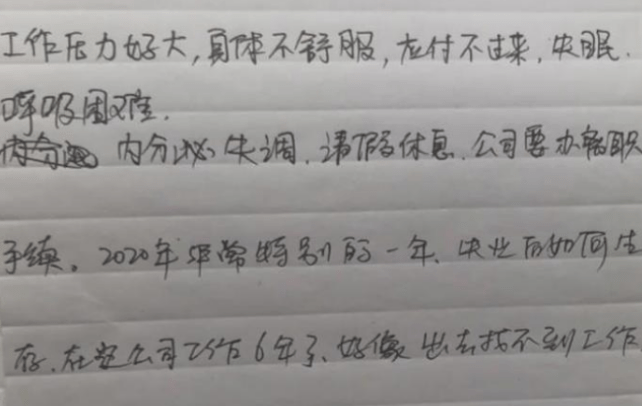 工作压力好大,身体不舒服,应付不过来,失眠.
呼吸困难.
内分泌 内分泌失调.请假休息.公司要办辞职
手续。2020年非常特别的一年、失业后如何生
存.在这公司工作6年了、好像出去找不到工作